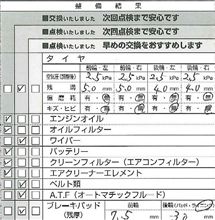 整備結果
■交換いたしました 次回点検まで安心です
■点検いたしました 次回点検まで安心です
■点検いたしました 早めの交換をおすすめします
タイヤ
前輪・左 前輪・右 後輪・左 後輪・右
2.5 kPa 2.5 kPa 2.5 kPa 2.5 kPa
残溝 5.0 mm 5.0 mm 4.0 mm 4.0 mm
偏磨耗 有・無 有・無 有・無 有・無
キズ・ヒビ 有・無 有・無 有・無 有・無
エンジンオイル
オイルフィルター
ワイパー
バッテリー
クリーンフィルター（エアコンフィルター）
エアクリーナーエレメント
ベルト類
A.T.F（オートマチックフルード）
ブレーキパッド（残厚）
7.5 mm